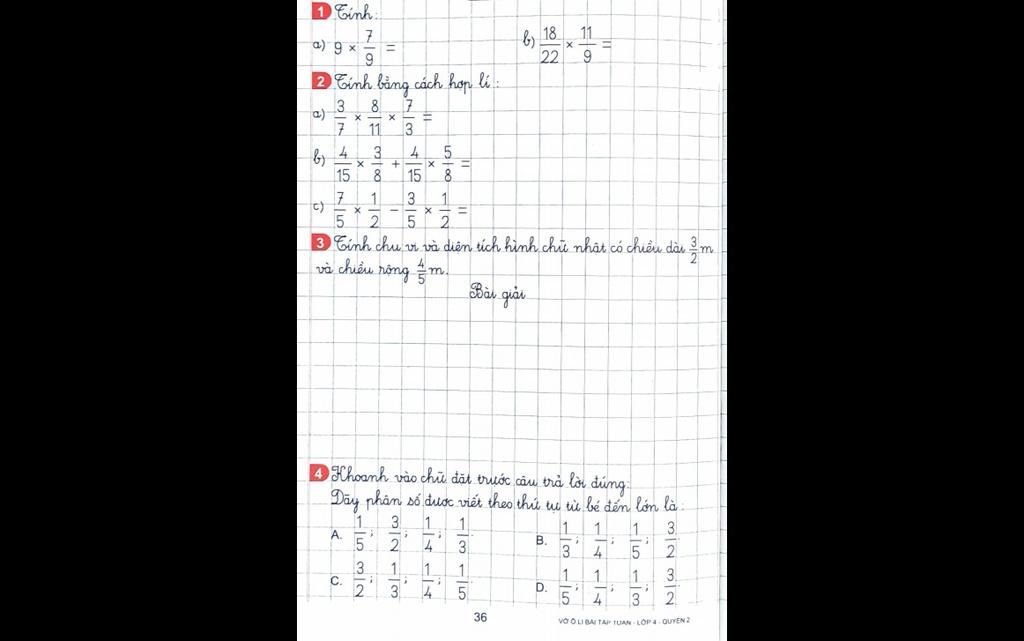 1 Tính:
a) 9 × 7/9 = b) 18/22 × 11/9 =
2 Tính bằng cách hợp lí:
a) 3/7 × 8/11 × 7/3 =
b) 4/15 × 3/8 + 4/15 × 5/8 =
c) 7/5 × 1/2 − 3/5 × 1/2 =
3 Tính chu vi và diện tích hình chữ nhật có chiều dài 3/2 m
và chiều rộng 4/5 m.
Bài giải
4 Khoanh vào chữ đặt trước câu trả lời đúng:
Dãy phân số được viết theo thứ tự từ bé đến lớn là:
A. 1/5; 3/2; 1/4; 1/3. B. 1/3; 1/4; 1/5; 3/2
C. 3/2; 1/3; 1/4; 1/5 D. 1/5; 1/4; 1/3; 3/2
36 VỞ Ô LI BÀI TẬP TUẦN - LỚP 4 - QUYỂN 2